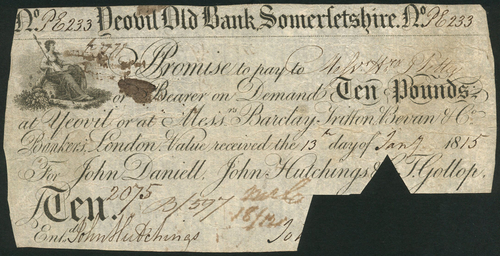 No. PE233 Yeovil Old Bank, Somersetshire. No. PE233
Promise to pay to
or Bearer on Demand Ten Pounds
at Yeovil or at Messrs. Barclay, Tritton, Bevan & Co.
Bankers, London. Value received the 13th day of Jany 1815
For John Daniell, John Hutchings & T. Gollop.
2075
Ten. B/597
Entd. John Hutchings